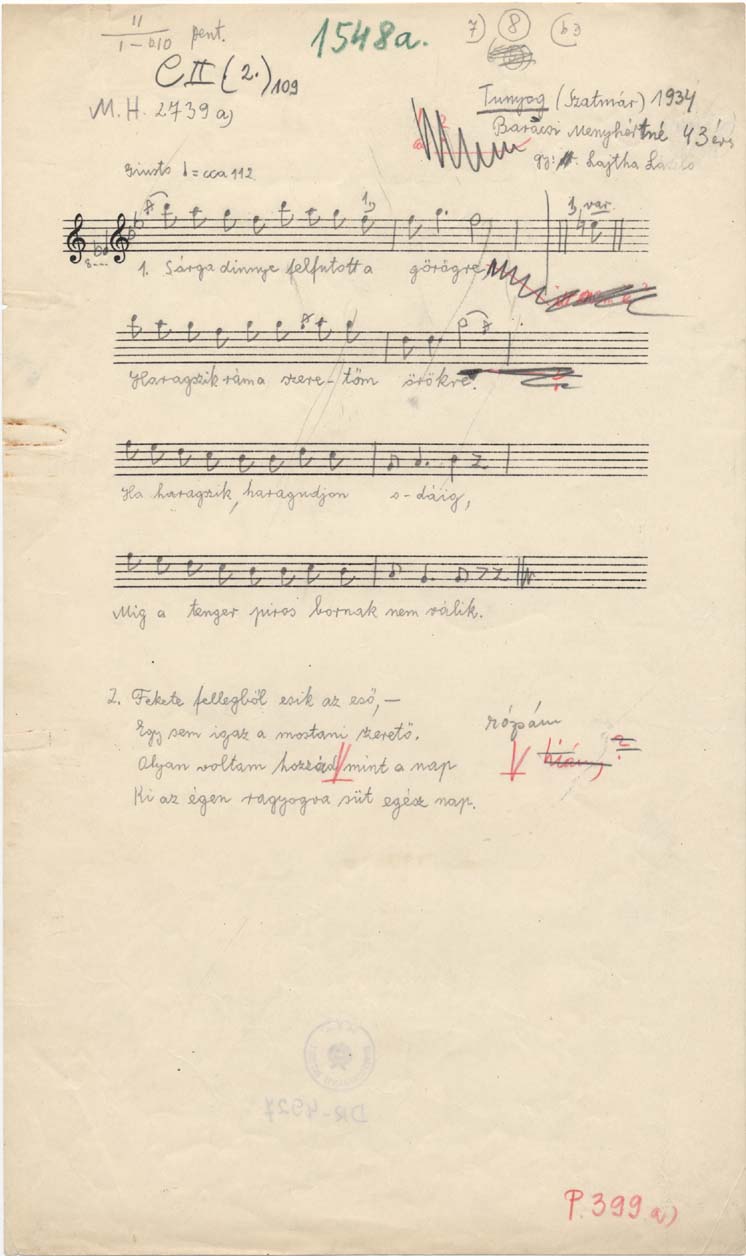 11
1–010 pent.
1548a.
7) 8 (b3
C II (2.) 109
M.H. 2739 a)
Tunyog (Szatmár) 1934
Barácsi Menyhértné 43 éves
gy: Lajtha László
Giusto = cca 112
1) 1, var.
8---
1. Sárga dinnye felfutott a görögre
Haragszik ráma szere-töm örökre.
Ha haragszik, haragudjon o-dáig,
Mig a tenger piros bornak nem válik.
2. Fekete fellegből esik az eső, –
Egy sem igaz a mostani szerető.
rózsám
Olyan voltam hozzád mint a nap
hiány ?
Ki az égen ragyogva süt egész nap.
DR-4927
P. 399 a)